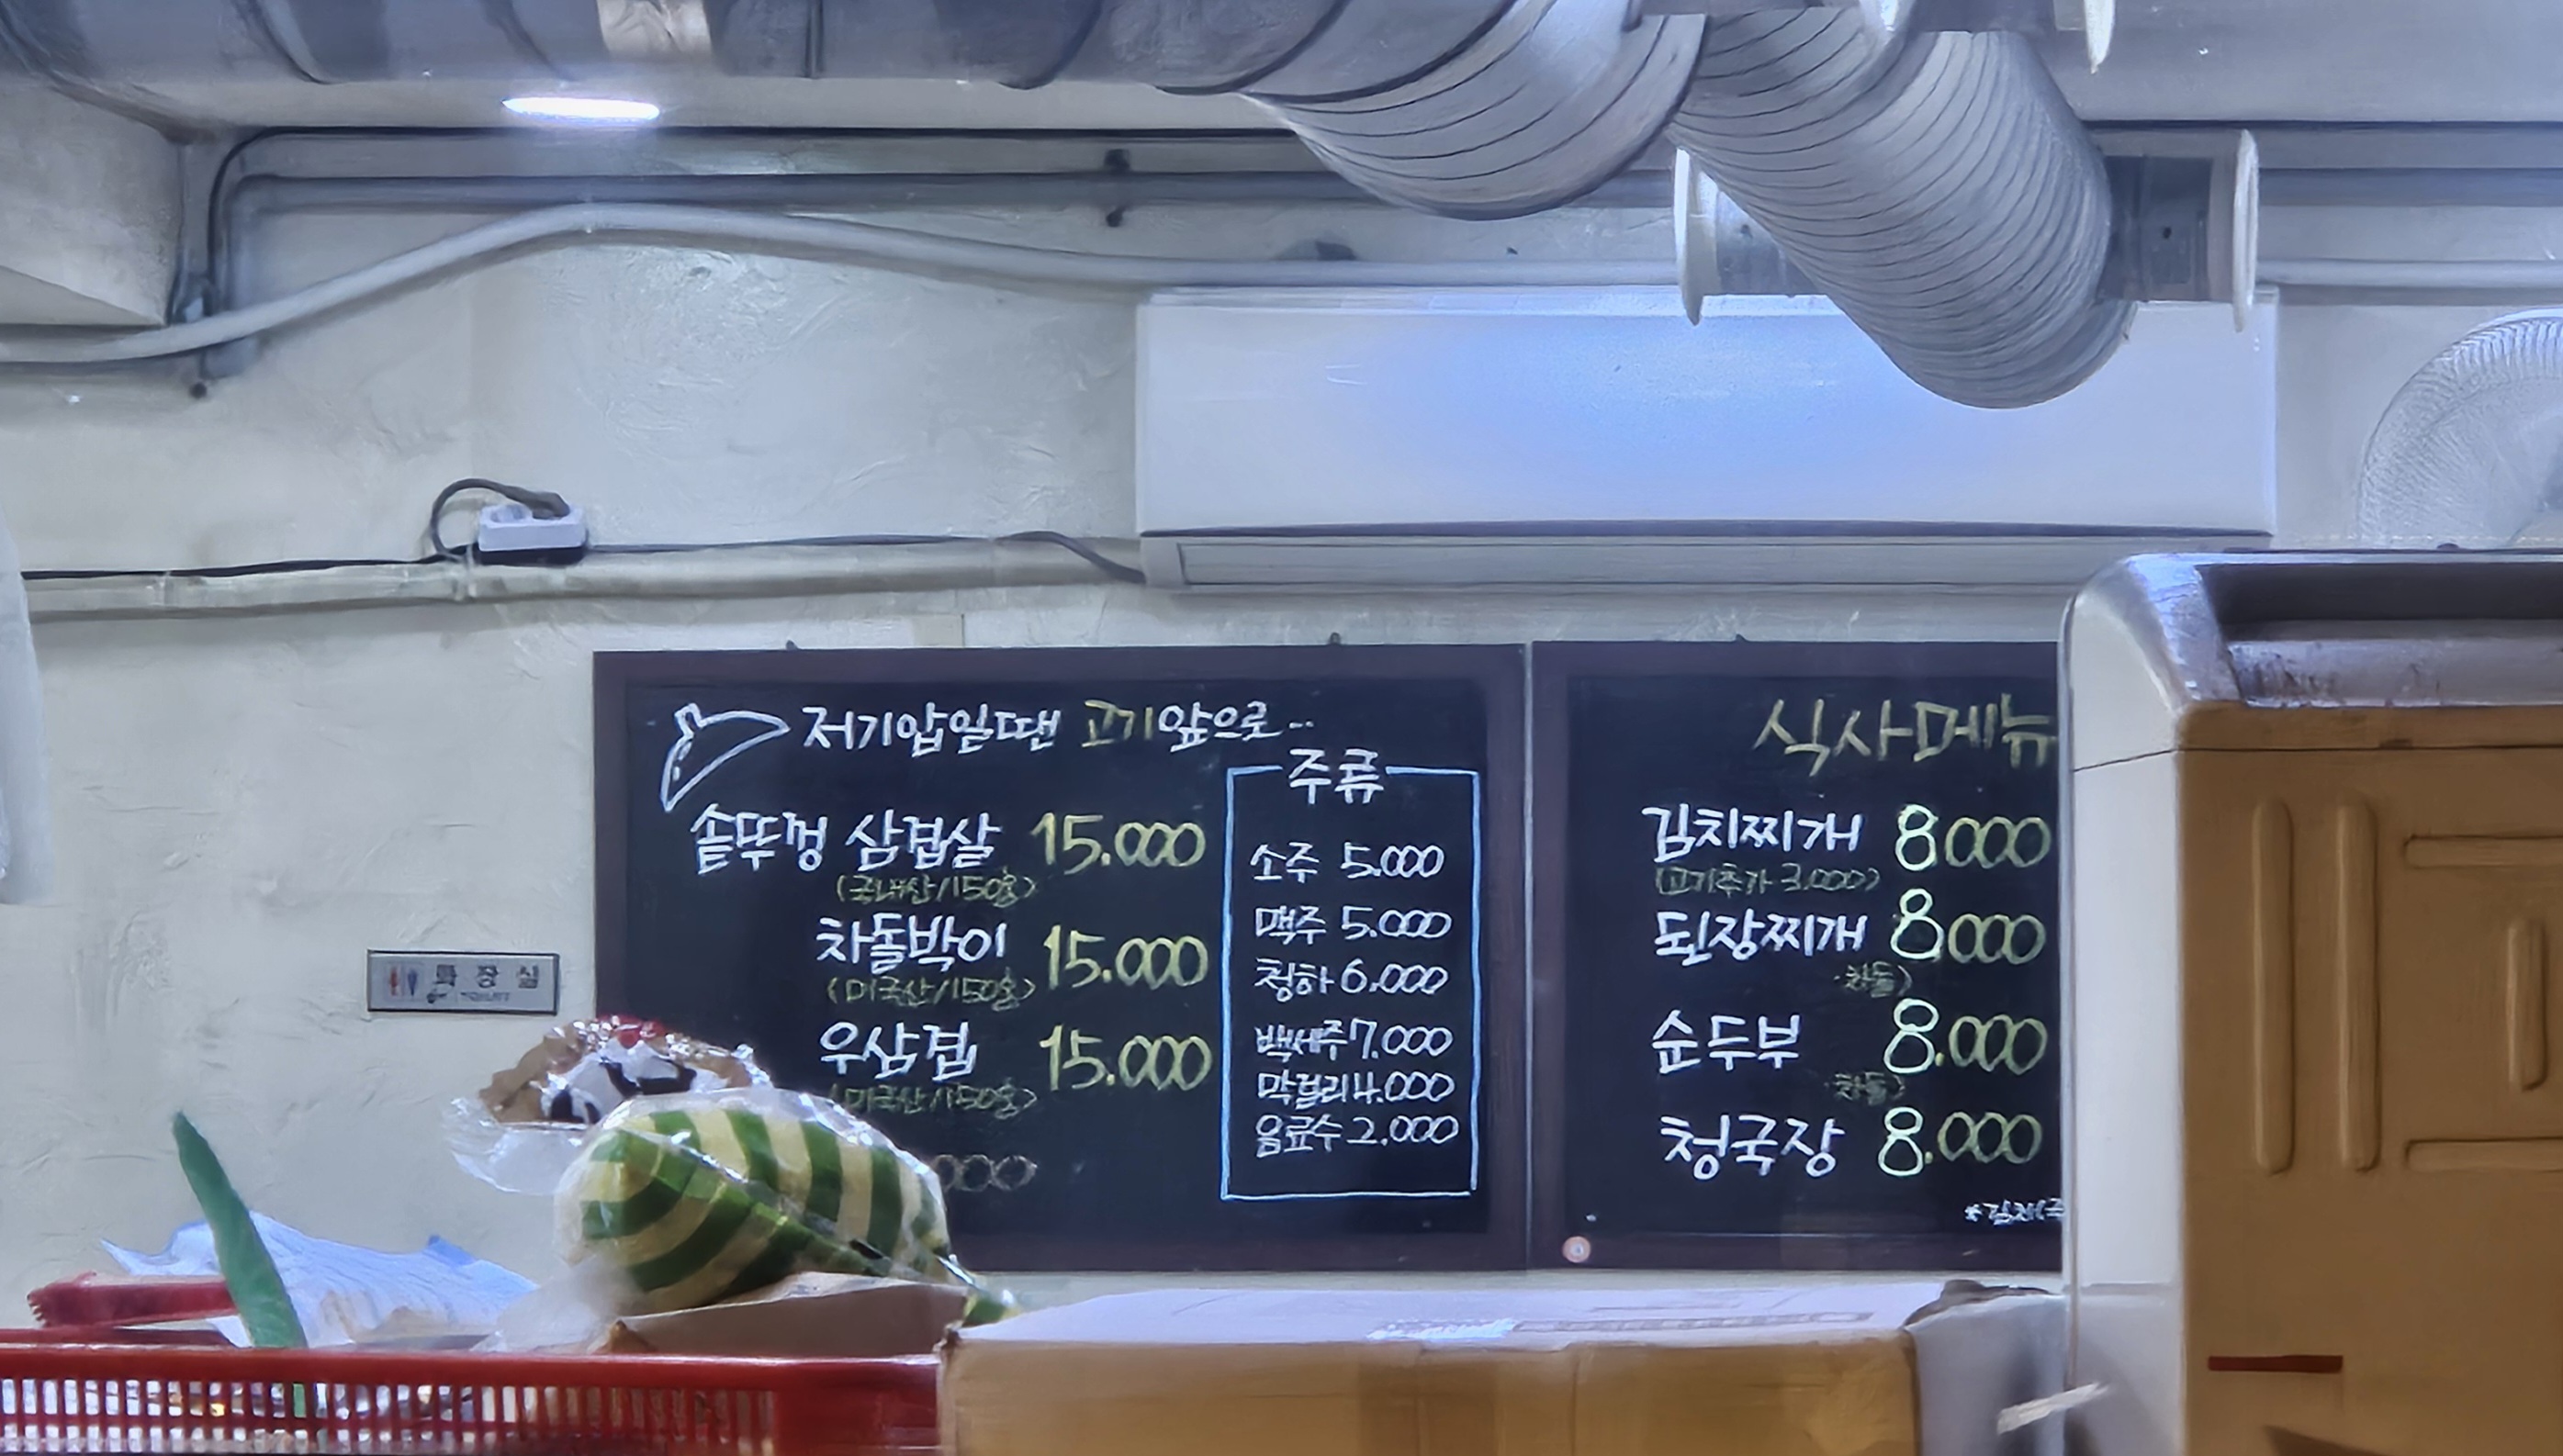 저기압일땐 고기앞으로..
솥뚜껑 삼겹살 15.000
(국내산/150g)
차돌박이 15.000
(미국산/150g)
우삼겹 15.000
(미국산/150g)
000
주류
소주 5.000
맥주 5.000
청하 6.000
백세주 7.000
막걸리 4.000
음료수 2.000
식사메뉴
김치찌개 8000
(고기추가 3.000)
된장찌개 8000
차돌)
순두부 8.000
차돌)
청국장 8.000
화장실
TOILET